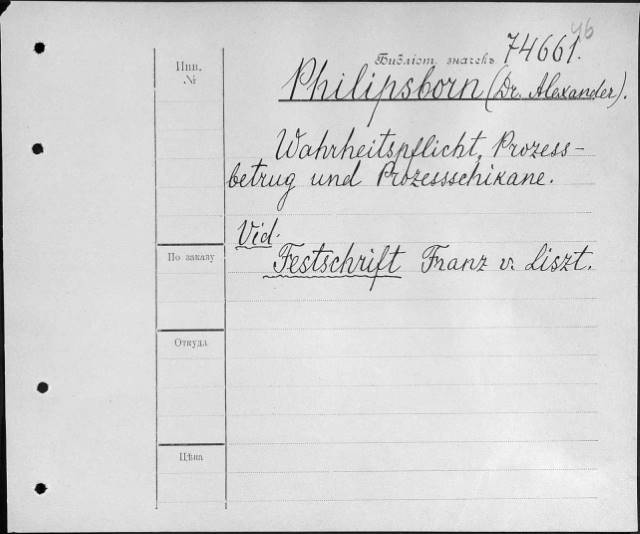 46
Библіот. значекъ 74661.
Инв.
№
Philipsborn (Dr. Alexander).
Wahrheitspflicht, Prozess-
betrug und Prozessschikane.
Vid.
По заказу
Festschrift Franz v. Liszt.
Откуда
Цѣна